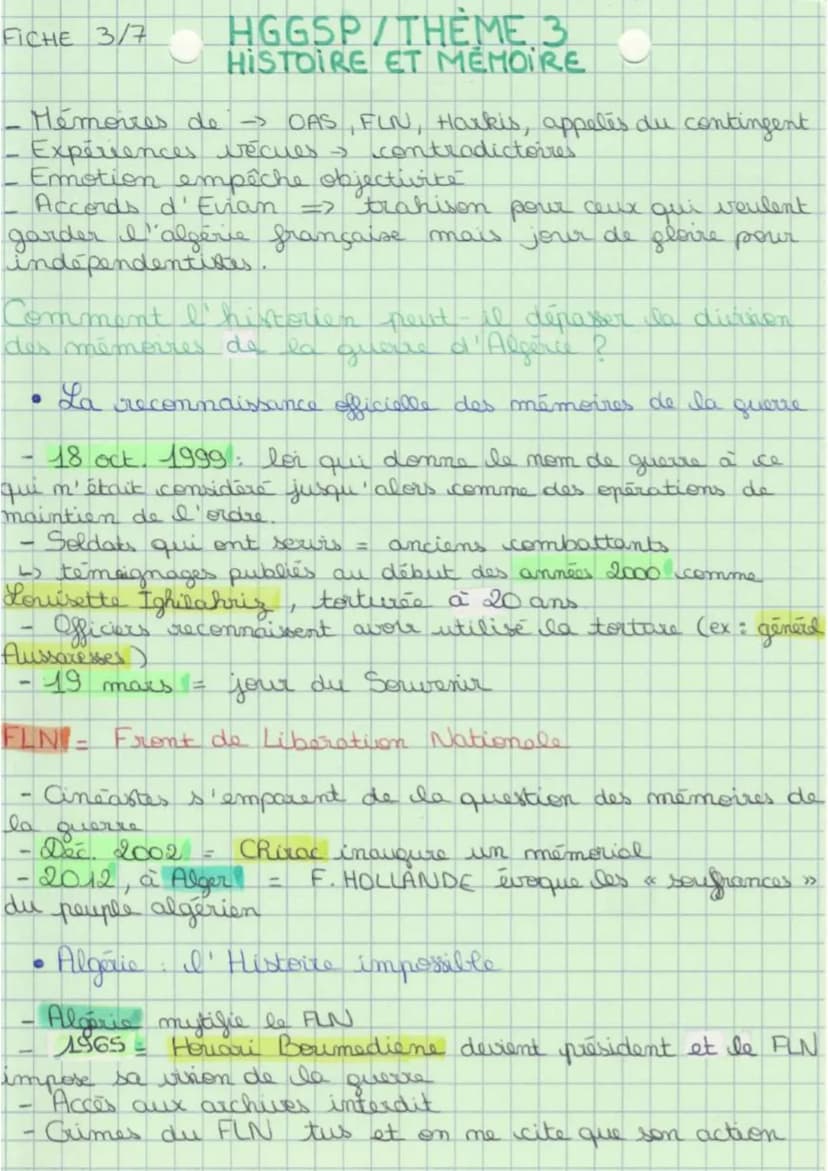 FICHE 3/7
HGGSP / THÈME 3
HISTOIRE ET MÉMOIRE
- Mémoires de -> OAS, FLN, Harkis, appelés du contingent
- Expériences vécues -> contradictoires
- Emotion empêche objectivité
- Accords d'Evian => trahison pour ceux qui veulent
garder l'algérie française mais jour de gloire pour
indépendentistes.
Comment l'historien peut-il dépasser la division
des mémoires de la guerre d'Algérie ?
• La reconnaissance officielle des mémoires de la guerre
- 18 oct. 1999 : loi qui donne le nom de guerre à ce
qui n'était considéré jusqu'alors comme des opérations de
maintien de l'ordre.
- Soldats qui ont servis = anciens combattants
↳ témoignages publiés au début des années 2000 comme
Louisette Ighilahriz, torturée à 20 ans
- Officiers reconnaissent avoir utilisé la torture (ex : général
Aussaresses)
- 19 mars = jour du Souvenir
FLN = Front de Libération Nationale
- Cinéastes s'emparent de la question des mémoires de
la guerre
- Déc. 2002 = CHirac inaugure un mémorial
- 2012, à Alger = F. HOLLANDE évoque les « soufrances »
du peuple algérien
• Algérie : l'Histoire impossible
- Algérie mytifie le FLN
- 1965 = Houari Boumediene devient président et le FLN
impose sa vision de la guerre
- Accès aux archives interdit
- Crimes du FLN tus et on ne cite que son action